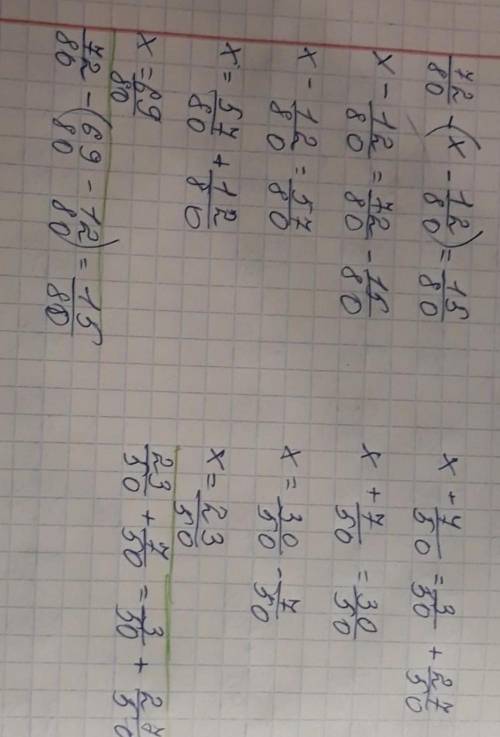 72/80 - (x - 12/80) = 15/80
x - 12/80 = 72/80 - 15/80
x - 12/80 = 57/80
x = 57/80 + 12/80
x = 69/80
72/80 - (69/80 - 12/80) = 15/80
x + 7/50 = 3/50 + 27/50
x + 7/50 = 30/50
x = 30/50 - 7/50
x = 23/50
23/50 + 7/50 = 3/50 + 27/50